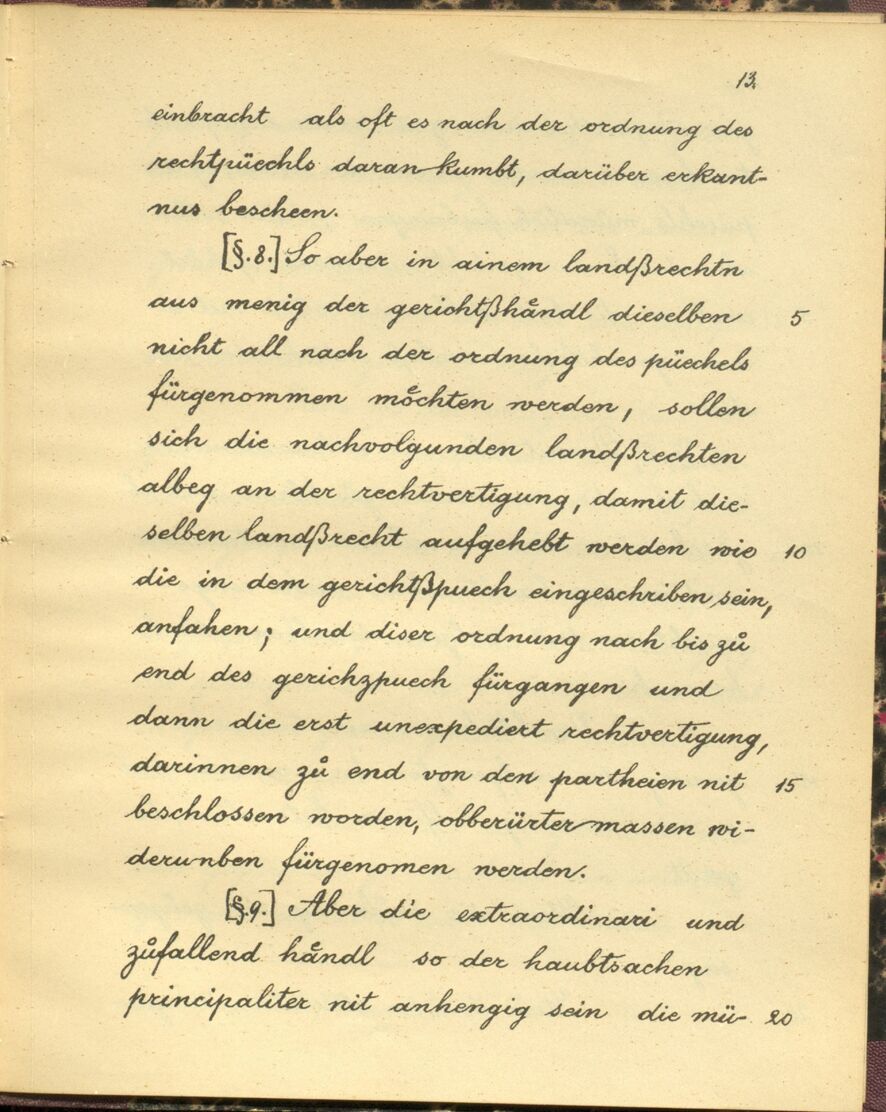 13.
einbracht als oft es nach der ordnung des
rechtpüechls daran kumbt, darüber erkant-
nus bescheen.
[§.8.] So aber in ainem landßrechtn
aus menig der gerichtßhaͤndl dieselben 5
nicht all nach der ordnung des püechels
fürgenommen moͤchten werden, sollen
sich die nachvolgunden landßrechten
albeg an der rechtvertigung, damit die-
selben landßrecht aufgehebt werden wie 10
die in dem gerichtßpuech eingeschriben sein,
anfahen; und diser ordnung nach bis zů
end des gerichzpuech fürgangen und
dann die erst unexpediert rechtvertigung,
darinnen zů end von den partheien nit 15
beschlossen worden, obberürter massen wi-
derumben fürgenomen werden.
[§.9.] Aber die extraordinari und
zůfallend haͤndl so der haubtsachen
principaliter nit anhengig sein die mü- 20